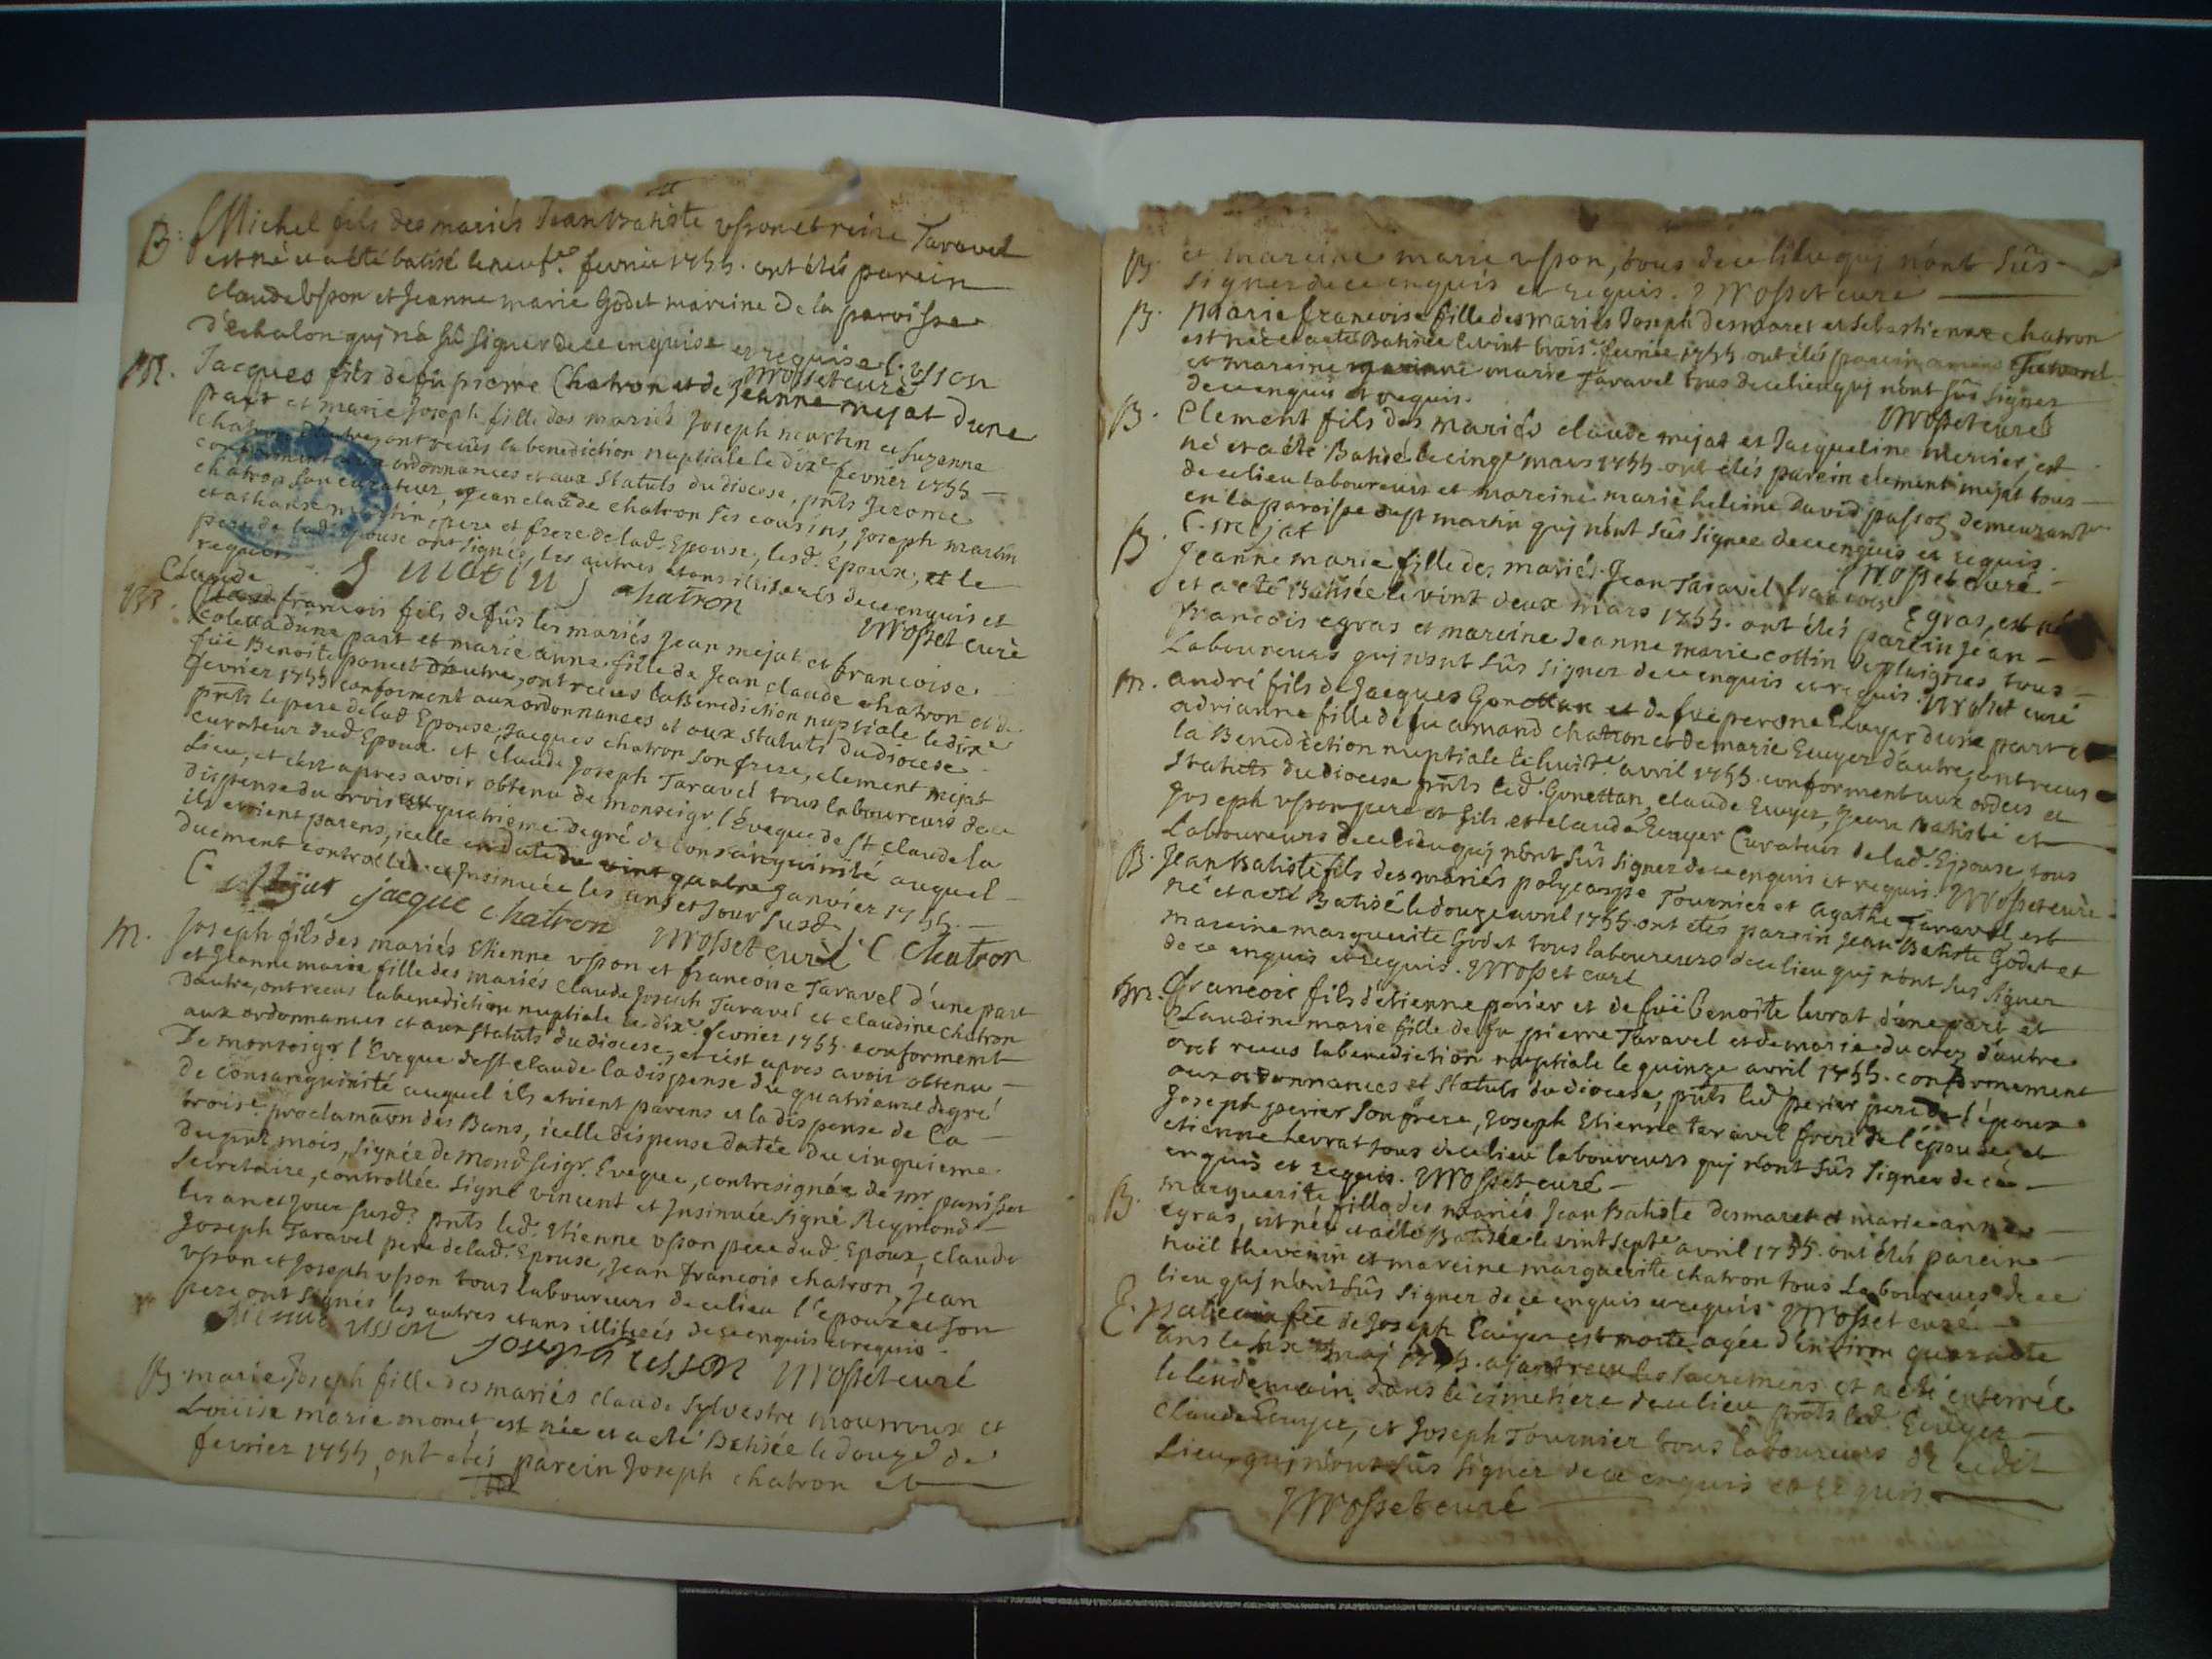 B. Michel fils des mariés Jean Batiste Usson et reine Taravel
est né et a été batisé le neuf.e fevrier 1755. ont étés parein
claude Usson et Jeanne marie Godet mareine de la paroisse
d'échalon quj n'a sû signer de ce enquise et requise C. Usson
Mosset curé
M. Jacques fils de fû pierre Chatron et de Jeanne mejat d'une
part et marie Joseph fille des mariés Joseph martin et suzanne
chatron d'autre, ont recûs la benediction nuptiale le dix.e fevrier 1755 –
conforment aux ordonnances et aux Statuts du diocese, pnts Jerome
chatron son curateur, Jean claude chatron ses cousins, Joseph martin
et athanse martin, pere et frere de lad. Epouse, lesd. Epoux, et le
pere de lad. Epouse ont signés, les autres etans illiterés de ce enquis et
requis J martin J chatron
Mosset curé
M. Claude francois fils de fûs les mariés Jean mejat et francoise
Coletta d'une part et marie anne fille de Jean claude chatron et de
füe Benoite poncet d'autre, ont recus la Benediction nuptiale le dix.e
fevrier 1755 conforment aux ordonnances et aux Statuts du diocese
pnts le pere de lad Epouse, Jacques chatron son frere, clement mejat
curateur dud Epoux et claude Joseph Taravel tous laboureurs de ce
Lieu, et c'est apres avoir obtenu de monseigr. l'Eveque de St claude la
dispense du trois au quatrieme degré de consanguinité auquel –
ils etoient parens, icelle en date du vint quatre Janvier 1755. –
duement controllée et Jnsinuée les an et Jour susd.
C. Mejat jacque chatron Mosset curé J C Chatron
M. Joseph fils des mariés Etienne Usson et francoise Taravel d'une part
et Jeanne marie fille des mariés Claude Joseph Taravel et claudine chatron
d'autre, ont recus la benediction nuptiale le dix.e fevrier 1755. conforment
aux ordonnances et aux Statuts du diocese, et c'est apres avoir obtenu –
De monseigr l'Eveque de St claude la dispense du quatrieme degré
de Consanguinité auquel ils etoient parens et la dispense de la –
trois.e proclamãon des Bans, icelle dispense datée du cinquieme
du pnt mois, Signée de mond Seigr. Eveque, contresignée de mr panisset
Secretaire, controllée Signé vincent et Jnsinuée Signé Reymond –
les an et Jour susd. pnts led. Etienne Usson pere dud. Epoux, claude
Joseph Taravel pere de lad. Epouse, Jean francois chatron, Jean
Usson et Joseph Usson tous laboureurs de ce lieu l'epoux et son
pere ont signés les autres etans illiterés de ce enquis et requis
Etienne usson Joseph usson Mosset curé
B. marie Joseph fille des mariés claude Sylvestre mourroux et
Loüise marie monet, est née et a eté Batisée le douze.e de
fevrier 1755, ont étés parein Joseph chatron et
B. et mareine marie Usson, tous de ce lieu quj n'ont sûs
signer de ce enquis et requis. Mosset curé
B. Marie francoise fille des mariés Joseph desmaret et sebastienne chatron
est née et a eté Batisée le vint trois.e fevrier 1755. ont étés parein
et mareine marie Taravel tous de ce lieu quj n'ont sûs signer
de ce enquis et requis. Mosset curé
B. Clement fils des mariés claude mejat et Jacqueline mercier, est
né et a eté Batisé le cinq.e mars 1755. ont étés parein clement mejat tous –
de ce lieu laboureurs et mareine marie heleine David passoz demeurant
en la paroisse de st martin quj n'ont sûs signer de ce enquis et requis.
C. mejat Mosset curé
B. Jeanne marie fille des mariés Jean Taravel francoise Egras, est née
et a eté Batisée le vint deux mars 1755. ont étés parein Jean –
francois egras et mareine Jeanne marie cottin de plaignes tous –
Laboureurs quj n'ont sûs signer de ce enquis et requis. Mosset curé
M. andré fils de Jacques Gonettan et de füe perone Ecuyer d'une part et
adrianne fille de fu amand chatron et de marie Ecuyer d'autre, ont recus
la Benediction nuptiale le huit.e avril 1755. conforment aux ordces et
Statuts du diocese pnts led. Gonettan, claude Ecuyer, Jean Batiste et
Joseph Usson pere et fils et claude Ecuyer Curateur de lad. Epouse tous
Laboureurs de ce lieu quj n'ont sûs signer de ce enquis et requis. Mosset curé
B. Jean Batiste fils des mariés polycarpe Tournier et agathe Taravel est
né et a eté Batisé le douze avril 1755. ont etés parein Jean Batiste Godet et
mareine marguerite Godet tous laboureurs de ce lieu quj n'ont sus signer
de ce enquis et requis. Mosset curé
M. francois fils d'etienne perier et de füe Benoite levrat d'une part et
Claudine marie fille de fu pierre Taravel et de marie ducrez d'autre
ont recus la benediction nuptiale le quinze avril 1755. conformement
aux ordonnances et Statuts du diocese, pnts led perier pere de l'époux
Joseph perier son frere, Joseph Etienne taravel frere de l'épouse, et
etienne Levrat tous de ce lieu laboureurs quj n'ont sûs signer de ce –
enquis et requis. Mosset curé –
B. marguerite fille des mariés Jean Batiste desmaret et marie anne –
egras, est née et a eté Batisée le vint sept.e avril 1755. ont étés parein –
noël thevenin et mareine marguerite chatron tous Laboureurs de ce
lieu quj n'ont sûs signer de ce enquis et requis Mosset curé –
E. de Joseph Ecuyer est morte agée d'environ quarante
ans le six maj 1755. ajant recu les sacremens et a été enterrée
le lendemain dans le cimetiere de ce lieu pnts led. Ecuyer –
Claude Ecuyer, et Joseph Tournier tous laboureurs de cedit
Lieu, quj n'ont sûs signer de ce enquis et requis –
Mosset curé